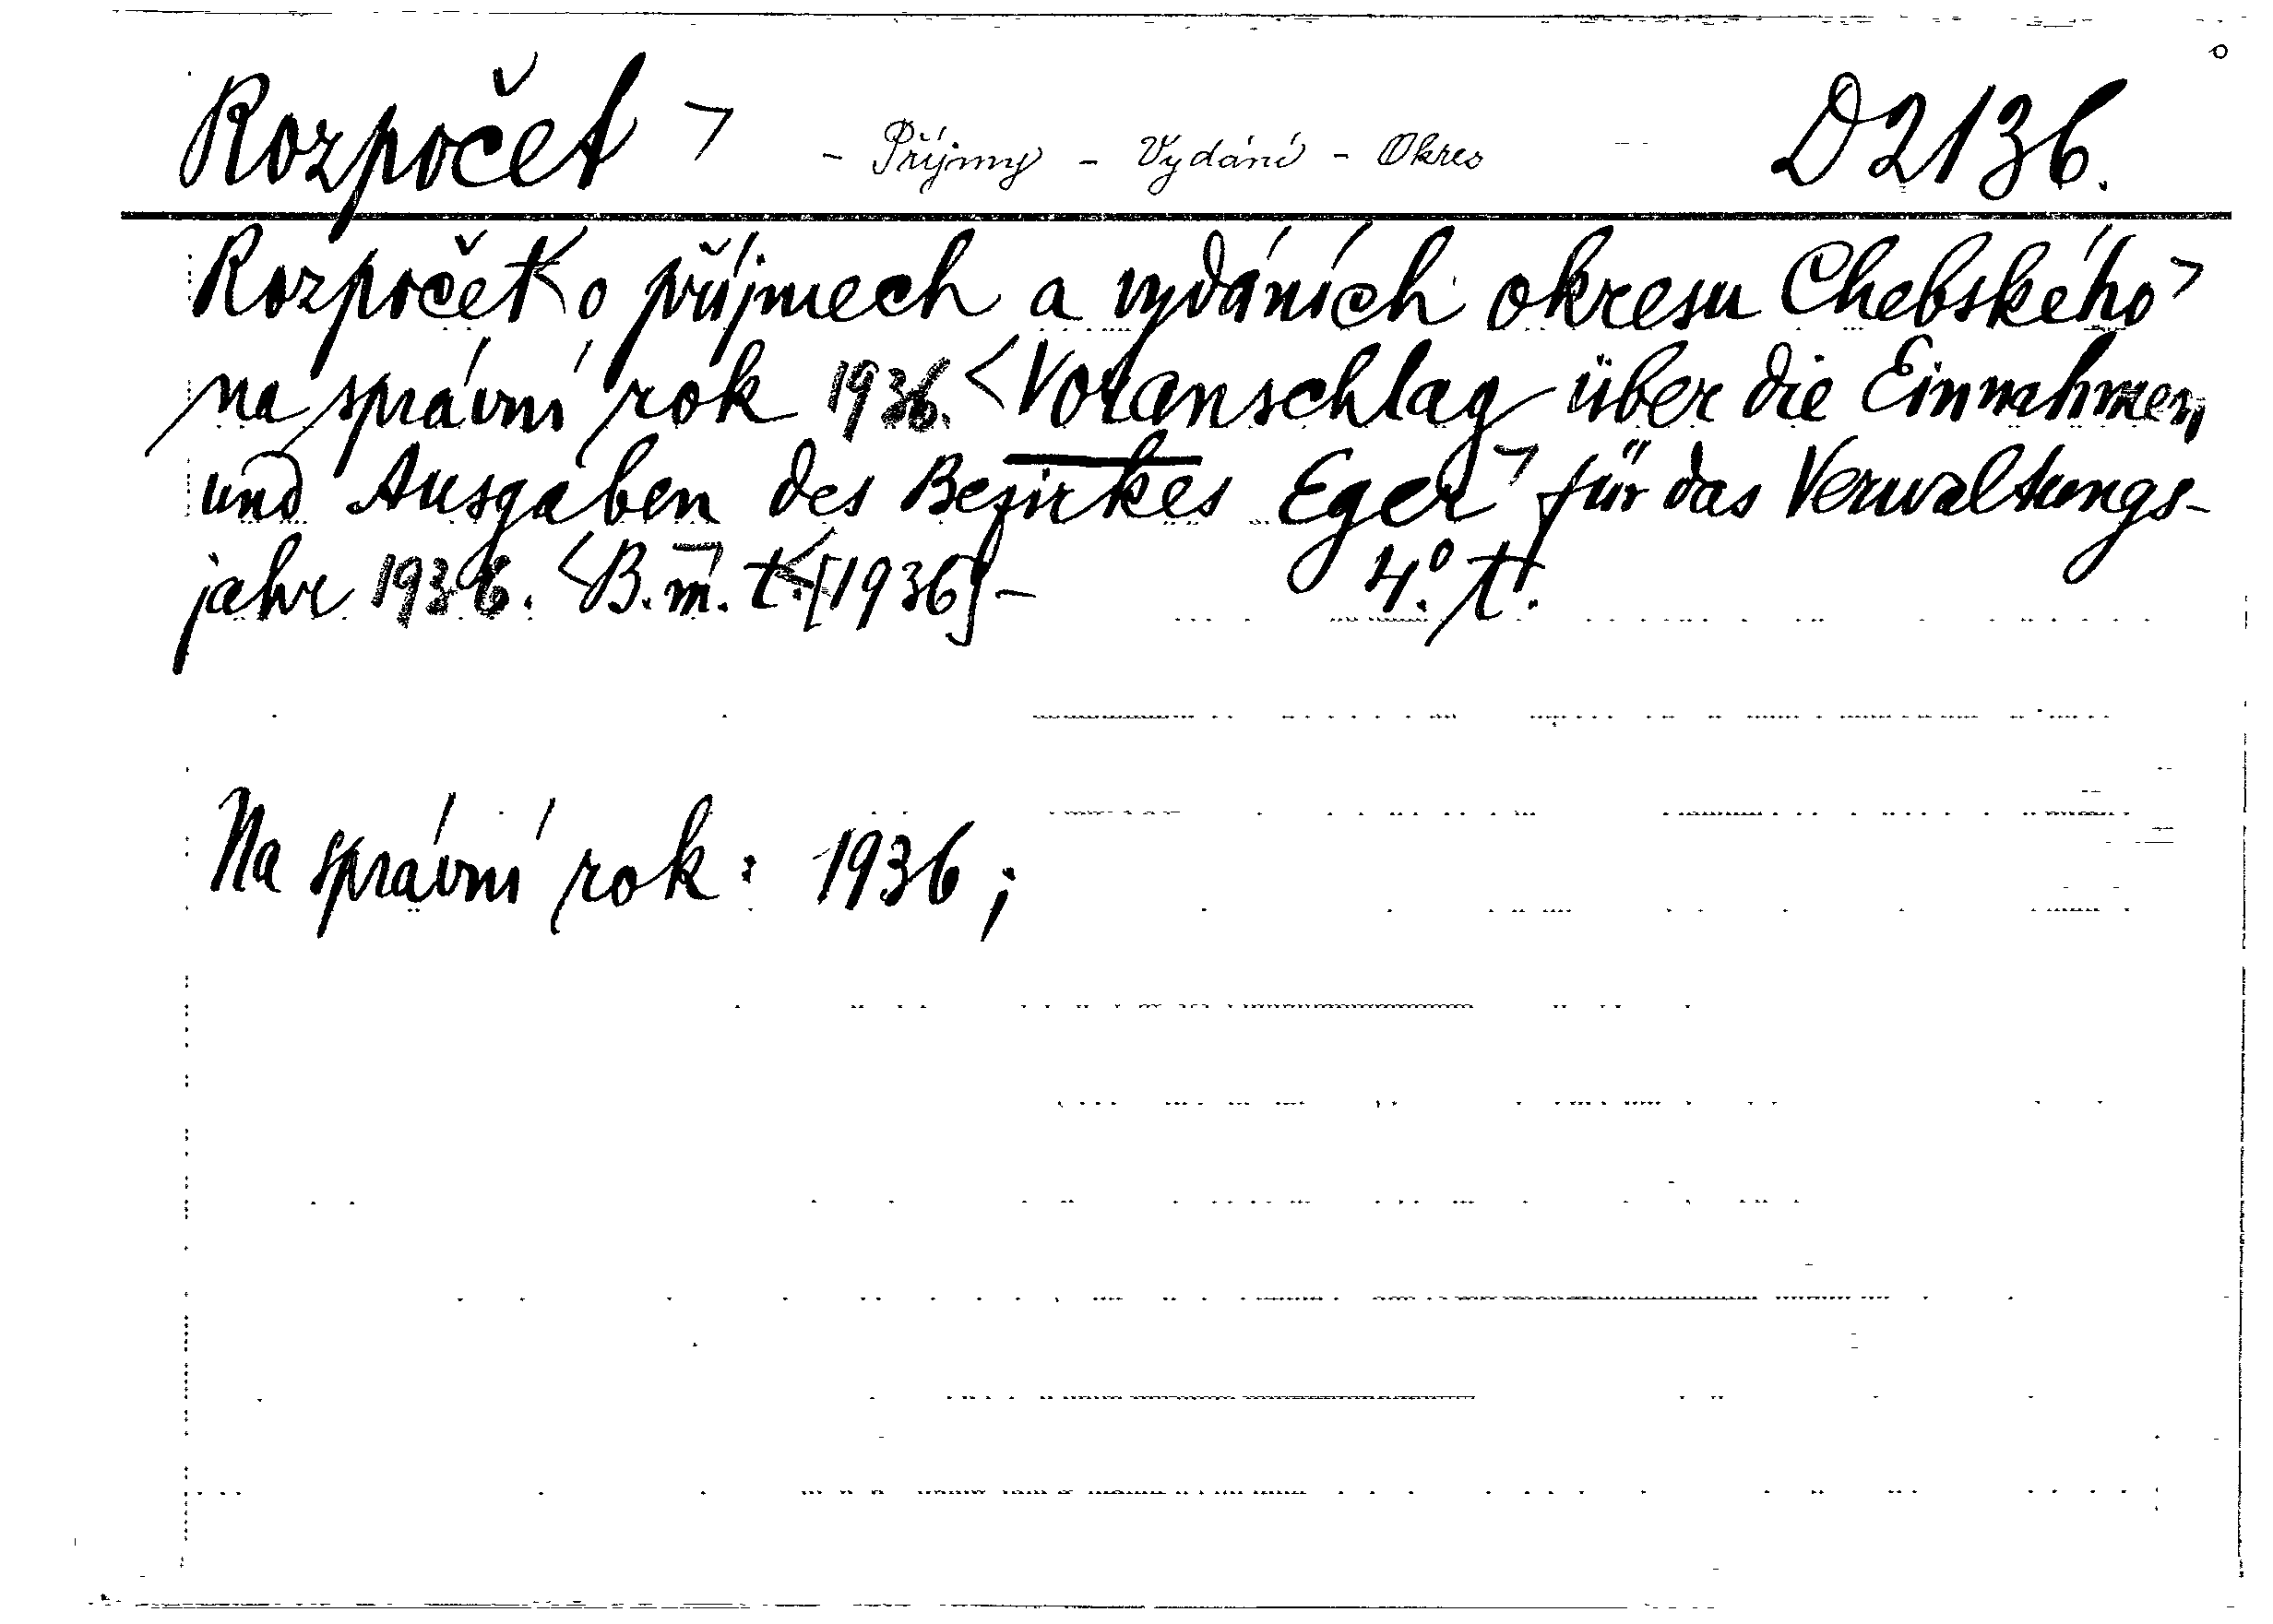 Rozpočet > - Příjmy - Vydání - Okres D2136.
Rozpočet < o příjmech a vydáních okresu Chebského >
na správní rok 1936. < Voranschlag über die Einnahmen
und Ausgaben des Bezirkes Eger > für das Verwaltungs-
jahr 1936. < B. m. t. < [1936] - 4.° T.
Na správní rok: 1936;